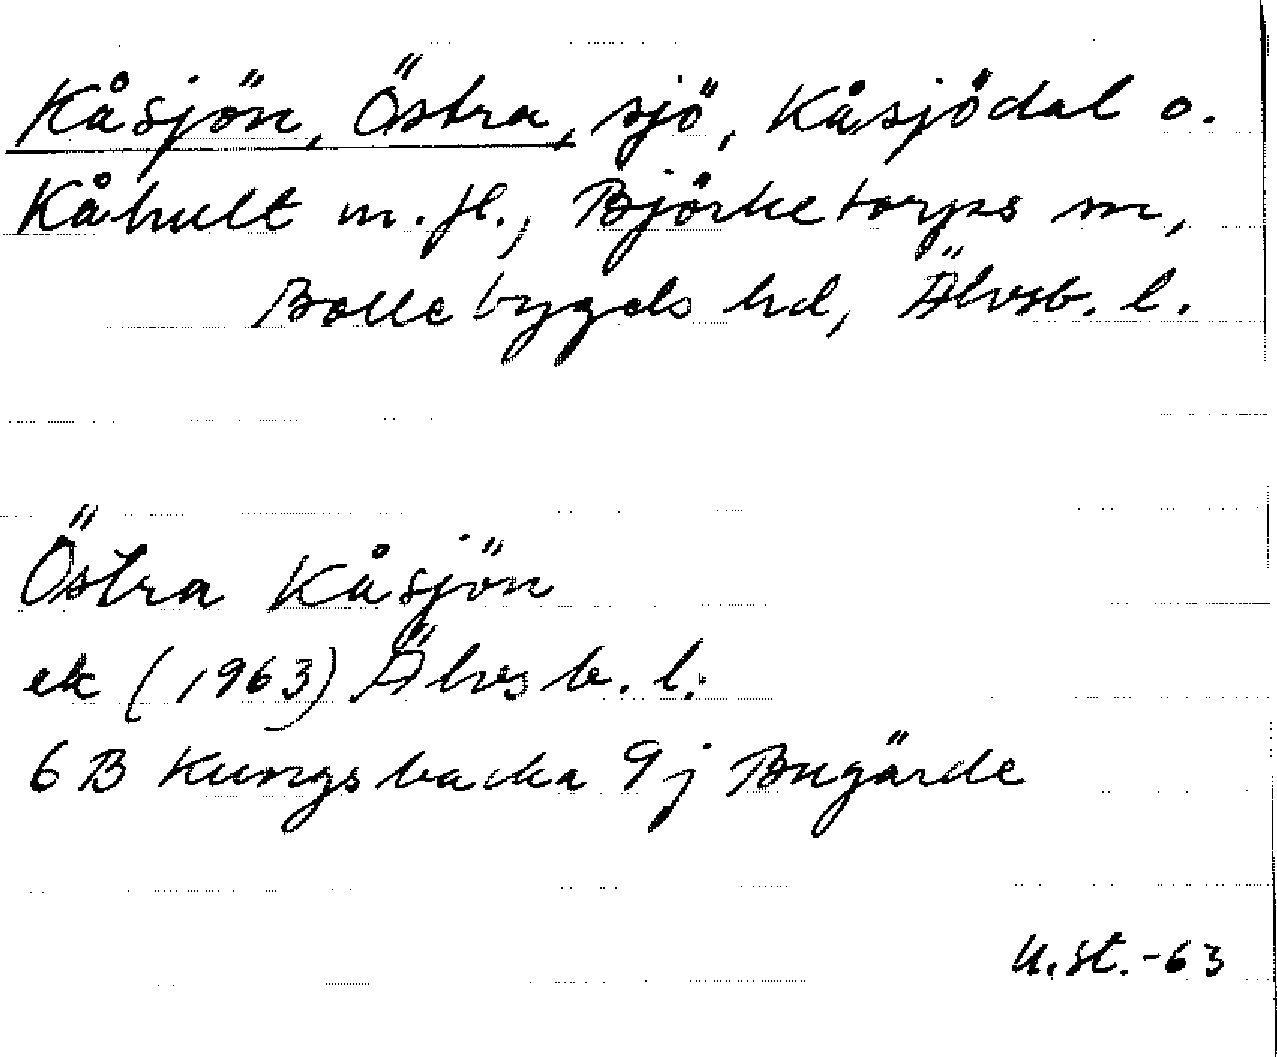 Kåsjön, Östra, sjö, Kåsjödal o.
Kåhult m.fl., Björketorps sn,
Bollebygds hd, Älvsb. l.
Östra Kåsjön
ek (1963) Älvsb. l.
6 B Kungsbacka 9j Bugärde
U.St.-63